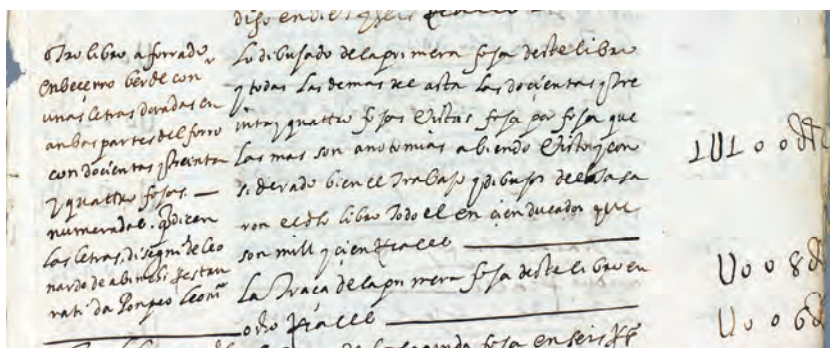 dijo en diez y seis Reales
otro libro, aforrado
en beçerro berde con
unas letras doradas en
ambas partes del forro
con docientas y treinta
y quattro fojas.—
numeradas. q̃ dicen
las letras, disegni de Leo
nardo de abinchi, restau
rati da Pompeo Leoni
Lo dibujado de la primera foja deste libro
y todas las demas de asta las docientas y tre
inta y quattro fojas Vistas foja por foja que
las mas son anotomias abiendo Visto y con
siderado bien el trabajo y dibujos
ron el dho libro todo el en cien ducados que
son mill y cien Reales
La Traça de la primera foja deste libro en
ocho Reales
de la segunda foja en seis Rs
U o o 8
U o o 6